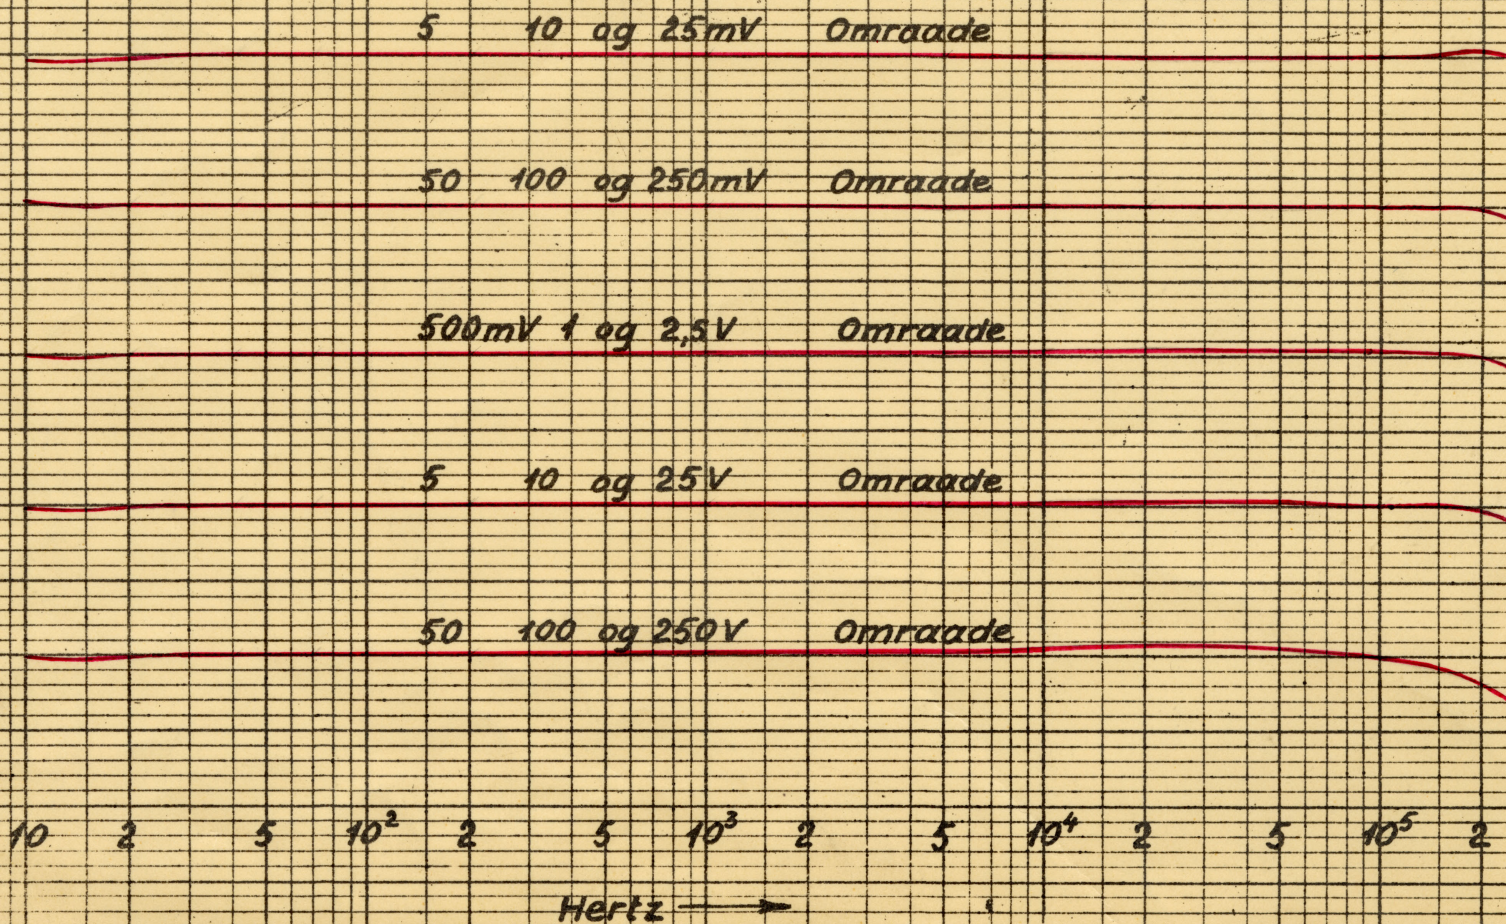 5 10 og 25mV Omraade
50 100 og 250mV Omraade
500mV 1 og 2,5V Omraade
5 10 og 25V Omraade
50 100 og 250V Omraade
10 2 5 10² 2 5 10³ 2 5 10⁴ 2 5 10⁵ 2
Hertz →